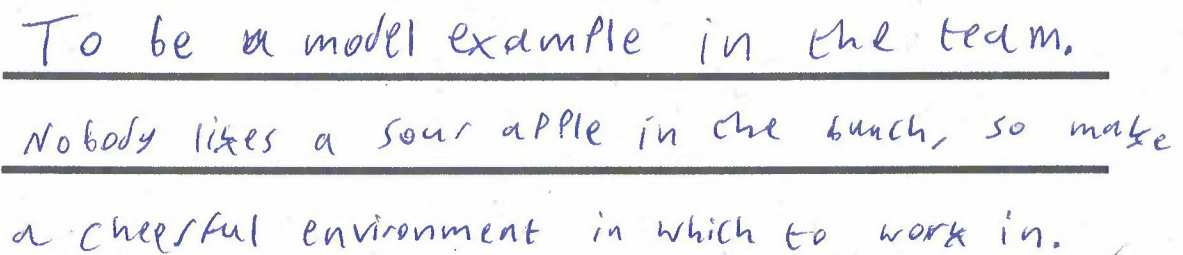 To be a model example in the team.
Nobody likes a sour apple in the bunch, so make
a cheerful environment in which to work in.